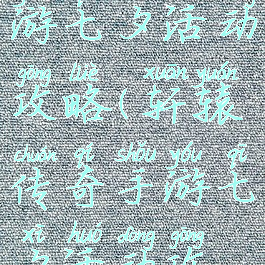 游七夕活动
gōng lüè xuān yuán
攻略(轩辕
chuán qí shǒu yóu qī
传奇手游七
xī huó dòng gōng